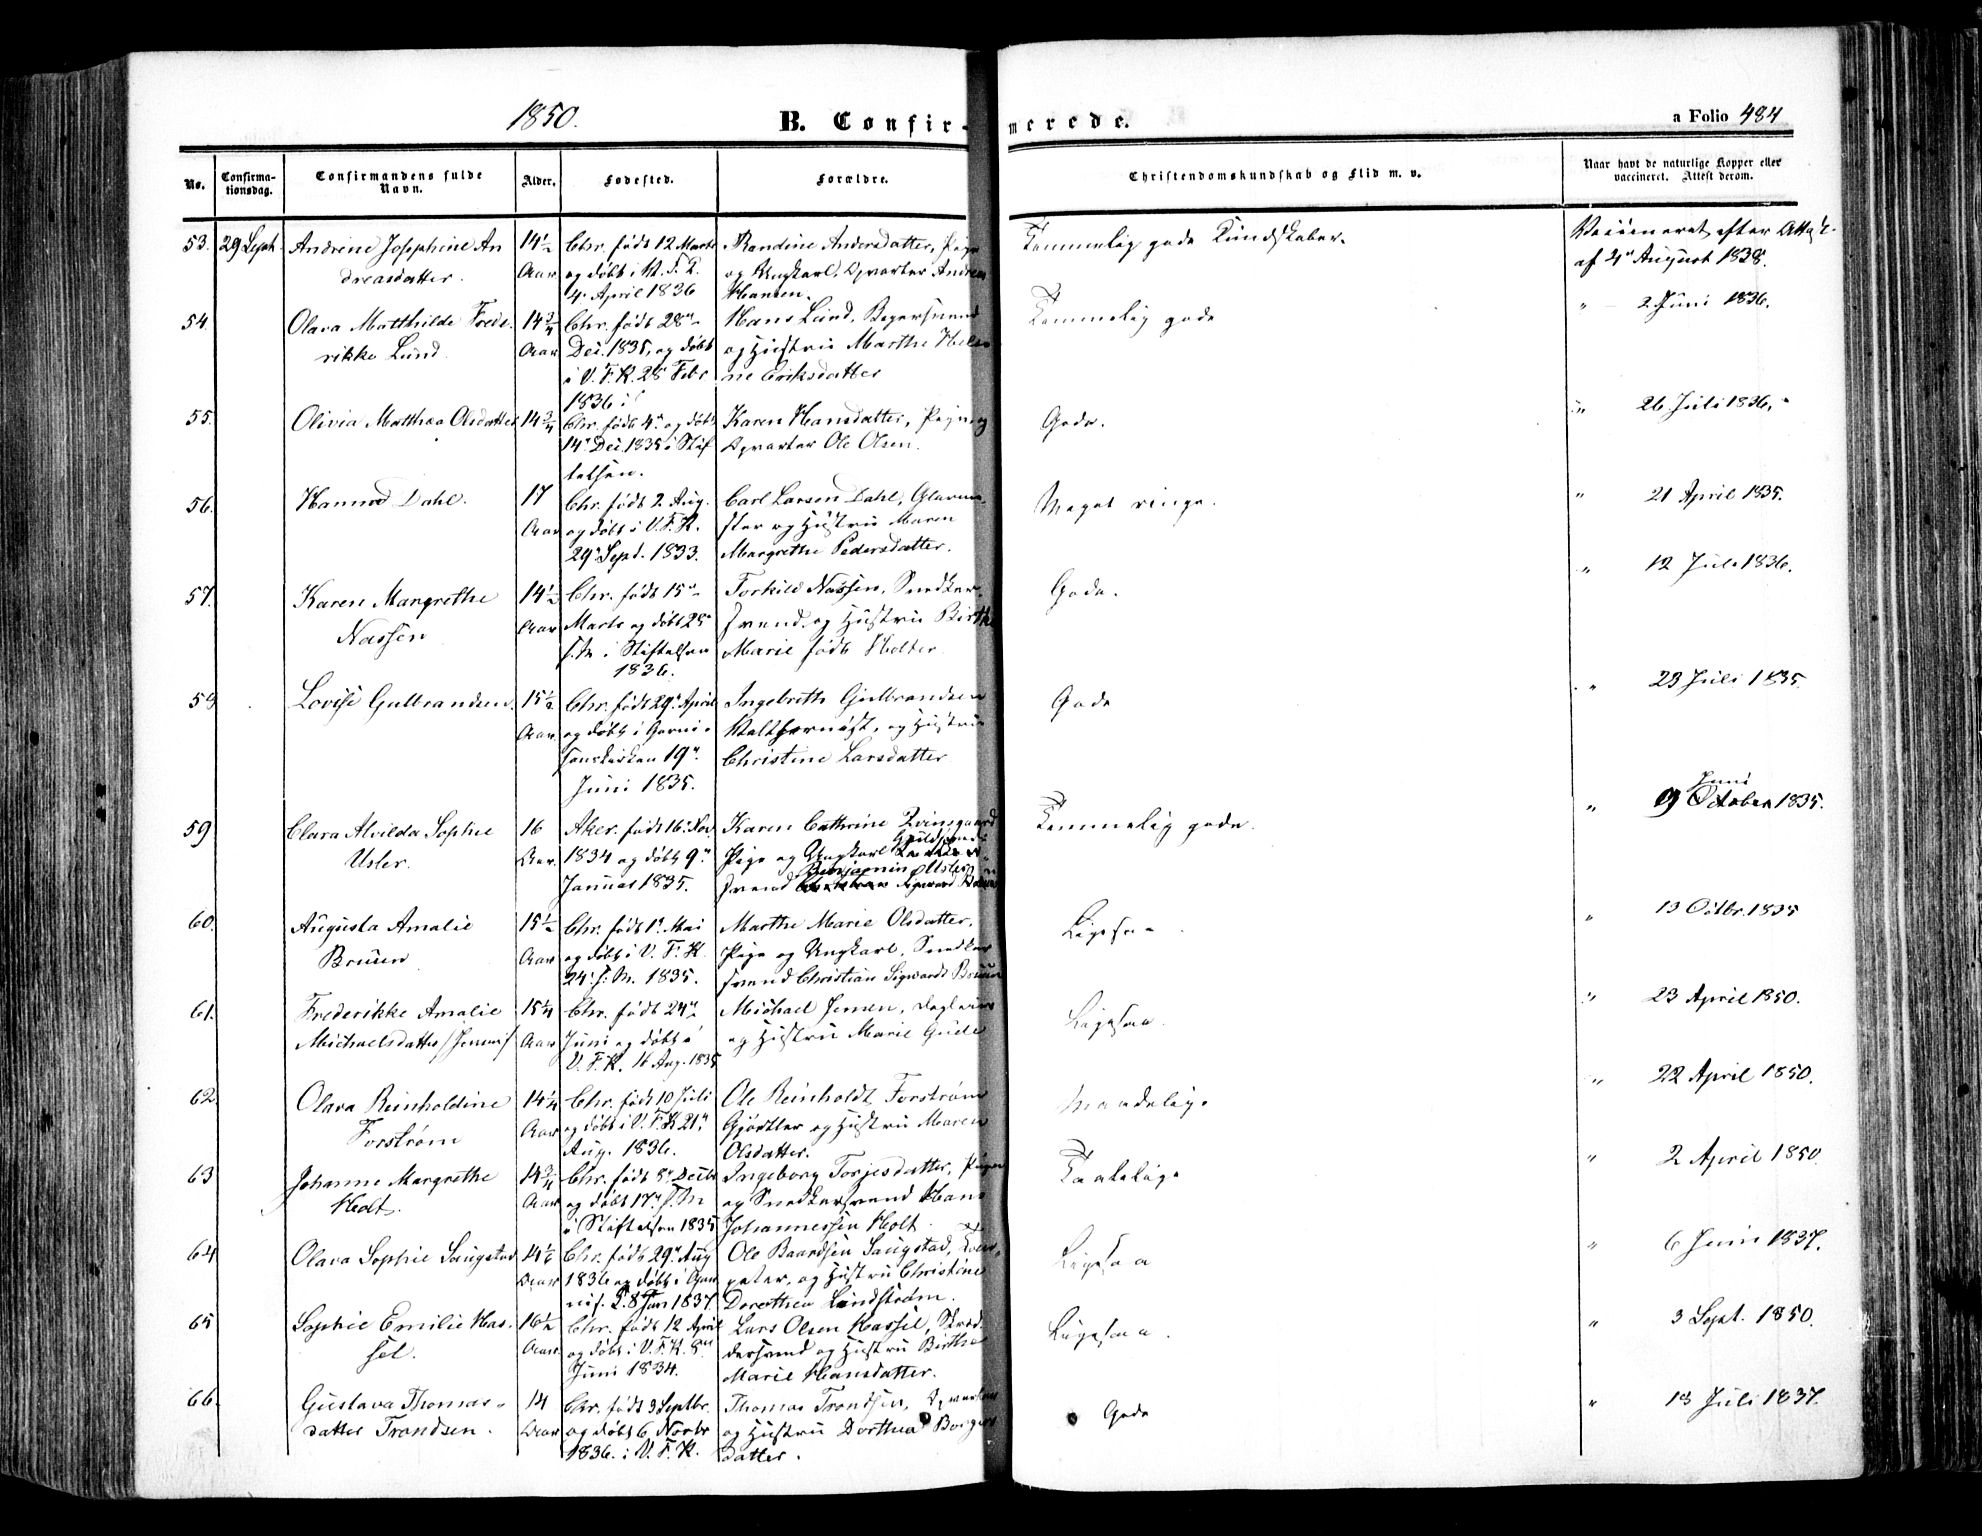 1850.
B. Confirmerede.
a Folio 484
No.
Confirmationsdag.
Confirmandens fulde Navn.
Alder.
Fødested.
Forældre.
Christendomskundskab og Flid m. v.
Naar havt de naturlige Kopper eller vaccineret. Attest derom.
53. 29 Sept. Andrine Josephine An 14½ Chr. født 12 Marts Randine Andersdatter, Pige Temmelig gode Kundskaber. Vaccineret efter Attest
dreasdatter. Aar og døbt i V. F. K. og Ungkarl, Opvarter Andreas af 4 August 1838.
4 April 1836 Hansen.
54. Olava Matthilde Frede- 14¾ Chr. født 28 Hans Lund, Temmelig gode " 2 Juni 1836.
rikke Lund. Aar Dec. 1835, og døbt og Hustru Marthe Hele-
i V. F. K. 28 Febr. ne Eriksdatter
1836
55. Olivia Matthea Olsdatter 14¾ Chr. født 4 og døbt Karen Hansdatter, Pige og Gode. " 26 Juli 1836.
14 Dec. 1835 i Stif Opvarter Ole Olsen.
telsen.
56. Hanna Dahl. 17 Chr. født 2 Aug. Carl Larsen Dahl, Glarme- Meget ringe. " 21 April 1835.
Aar og døbt i V. F. K. ster og Hustru Maren
29 Sept. 1833. Margrethe Pedersdatter.
57. Karen Margrethe 14½ Chr. født 15 Torkild Nassen, Snedker- Gode. " 12 Juli 1836.
Nassen Aar Marts og døbt 25 svend og Hustru Birthe
s. M. i Stiftelsen Marie født Holter
1836.
58 Lovise Gulbrandsen. 15½ Chr. født 29 April Ingebreth Gulbrandsen Gode " 23 Juli 1835.
Aar og døbt i Garni- Valthornist, og Hustru
sonskirken 19 Christine Larsdatter
Juni 1835.
59 Clara Alvilda Sophie 16 Aker. født 16 Nov Karen Cathrine Temmelig gode. " 9 Juni October 1835.
Usler. Aar. 1834 og døbt 9 Pige og Ungkarl
Januar 1835. svend Benjamin Usler
60. Augusta Amalie 15½ Chr. født 1 Mai Marthe Marie Olsdatter, Ligesaa. " 13 Octbr. 1835
Bruun Aar og døbt i V. F. K. Pige og Ungkarl, Snedker
24 s. M. 1835. svend Christian Sigwardt Bruun
61. Frederikke Amalie 15¼ Chr. født 24 Michael Jensen, Dagleier Ligesaa. " 23 April 1850.
Michaelsdatter Aar Juni og døbt og Hustru Marie Gude
V. F. K. 16 Aug. 1835
62. Olava Reinholdine 14¼ Chr. født 10 Juli Ole Reinholdt Forstrøm Maadelig. " 22 April 1850.
Forstrøm Aar og døbt i V. F. K 21 Gjørtler og Hustru Maren
Aug. 1836. Olsdatter.
63 Johanne Margrethe 14¾ Chr. født 5 Decbr Ingeborg Torjesdatter, Pige " 2 April 1850.
Holt. Aar og døbt 17 s. M og Snedkersvend Hans
i Stiftelsen 1835 Johannessen Holt.
64 Olava Sophie Saugstad 14½ Chr. født 29 Aug Ole Baardsen Saugstad, Ligesaa " 6 Juni 1837.
Aar 1836 og døbt i Gar og Hustru Christine
nis. K. 8 Jan 1837. Dorothea Lindstrøm.
65 Sophie Emilie Has- 16½ Chr. født 12 April Lars Olsen Hassel, Skræd Ligesaa. " 3 Sept. 1850.
sel. Aar og døbt i V. F. K. 8 dersvend og Hustru Birthe
Juni 1834. Marie Hansdatter.
66. Gustava Thomas- 14 Chr. født 3 Septbr. Thomas Trondsen, Gode " 13 Juli 1837.
datter Trondsen. Aar og døbt 6 Novbr og Hustru Dorthea
1836. i V. F. K. datter.